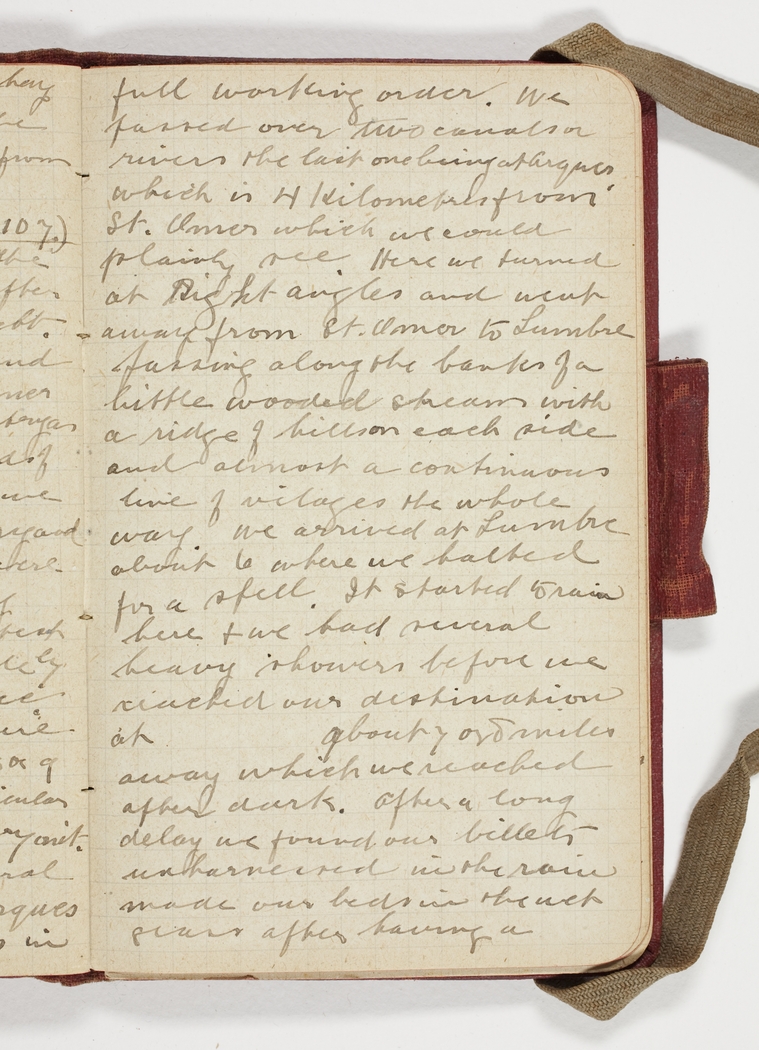 hay
be
from
107.)
the
after
ebt.
and
mer
ds of
we
good
were
of
best
tely
ce
ire
so q
icular
ral
rques
s in
full working order. We
passed over two canals or
rivers the last one being at Arques
which is 4 Kilometres from
St. Omer which we could
plainly see Here we turned
at Right angles and went
away from St. Omer to Lumbre
passing along the banks of a
little wooded stream with
a ridge of hills on each side
and almost a continuous
line of vilages the whole
way we arrived at Lumbre
about 6 where we halted
for a spell. It started to rain
here + we had several
heavy showers before we
reached our destination
at about 7 or 8 miles
away which we reached
after dark. After a long
delay we found our billets
unharnessed in the rain
made our beds in the wet
after having a